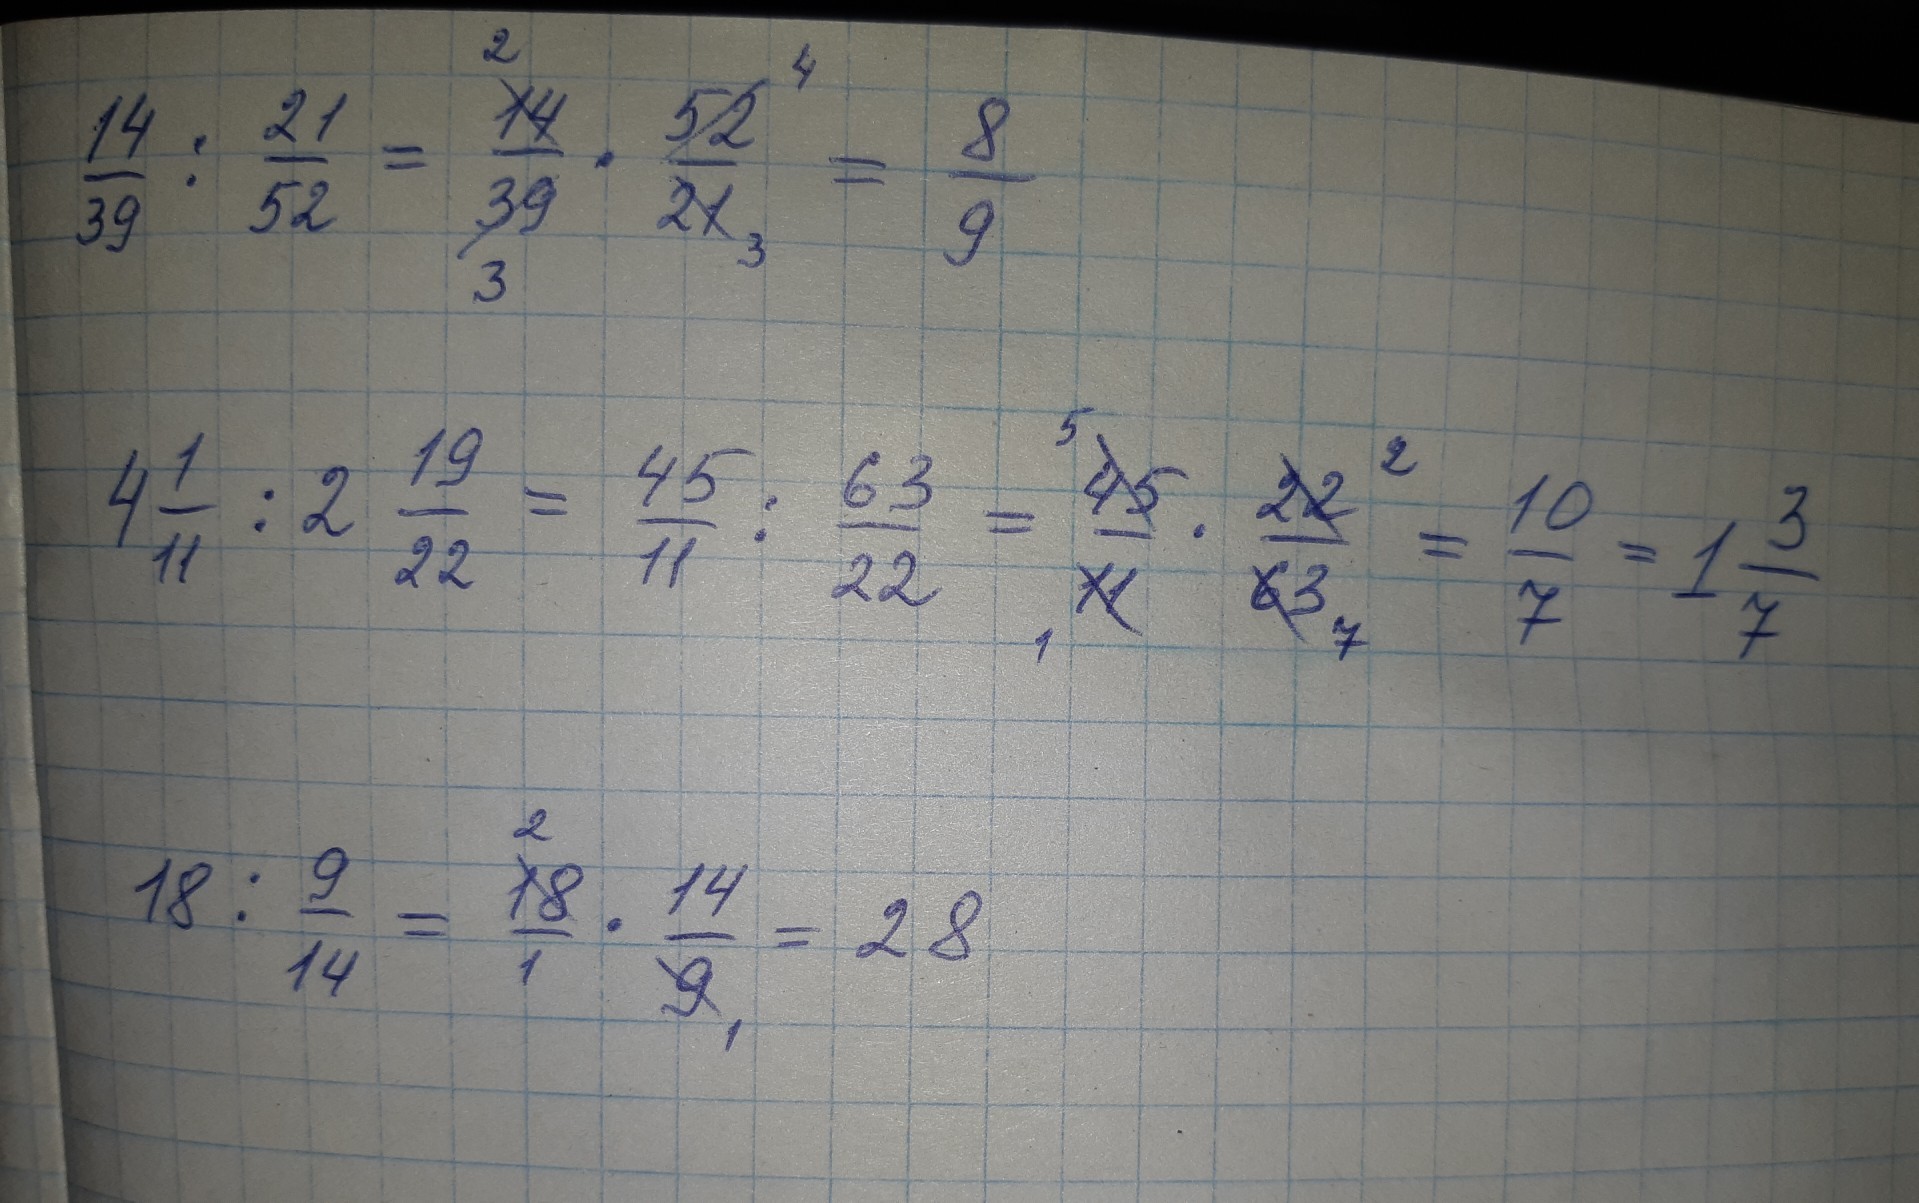 14/39 : 21/52 = 14/39 · 52/21 = 8/9
4 1/11 : 2 19/22 = 45/11 : 63/22 = 45/11 · 22/63 = 10/7 = 1 3/7
18 : 9/14 = 18/1 · 14/9 = 28